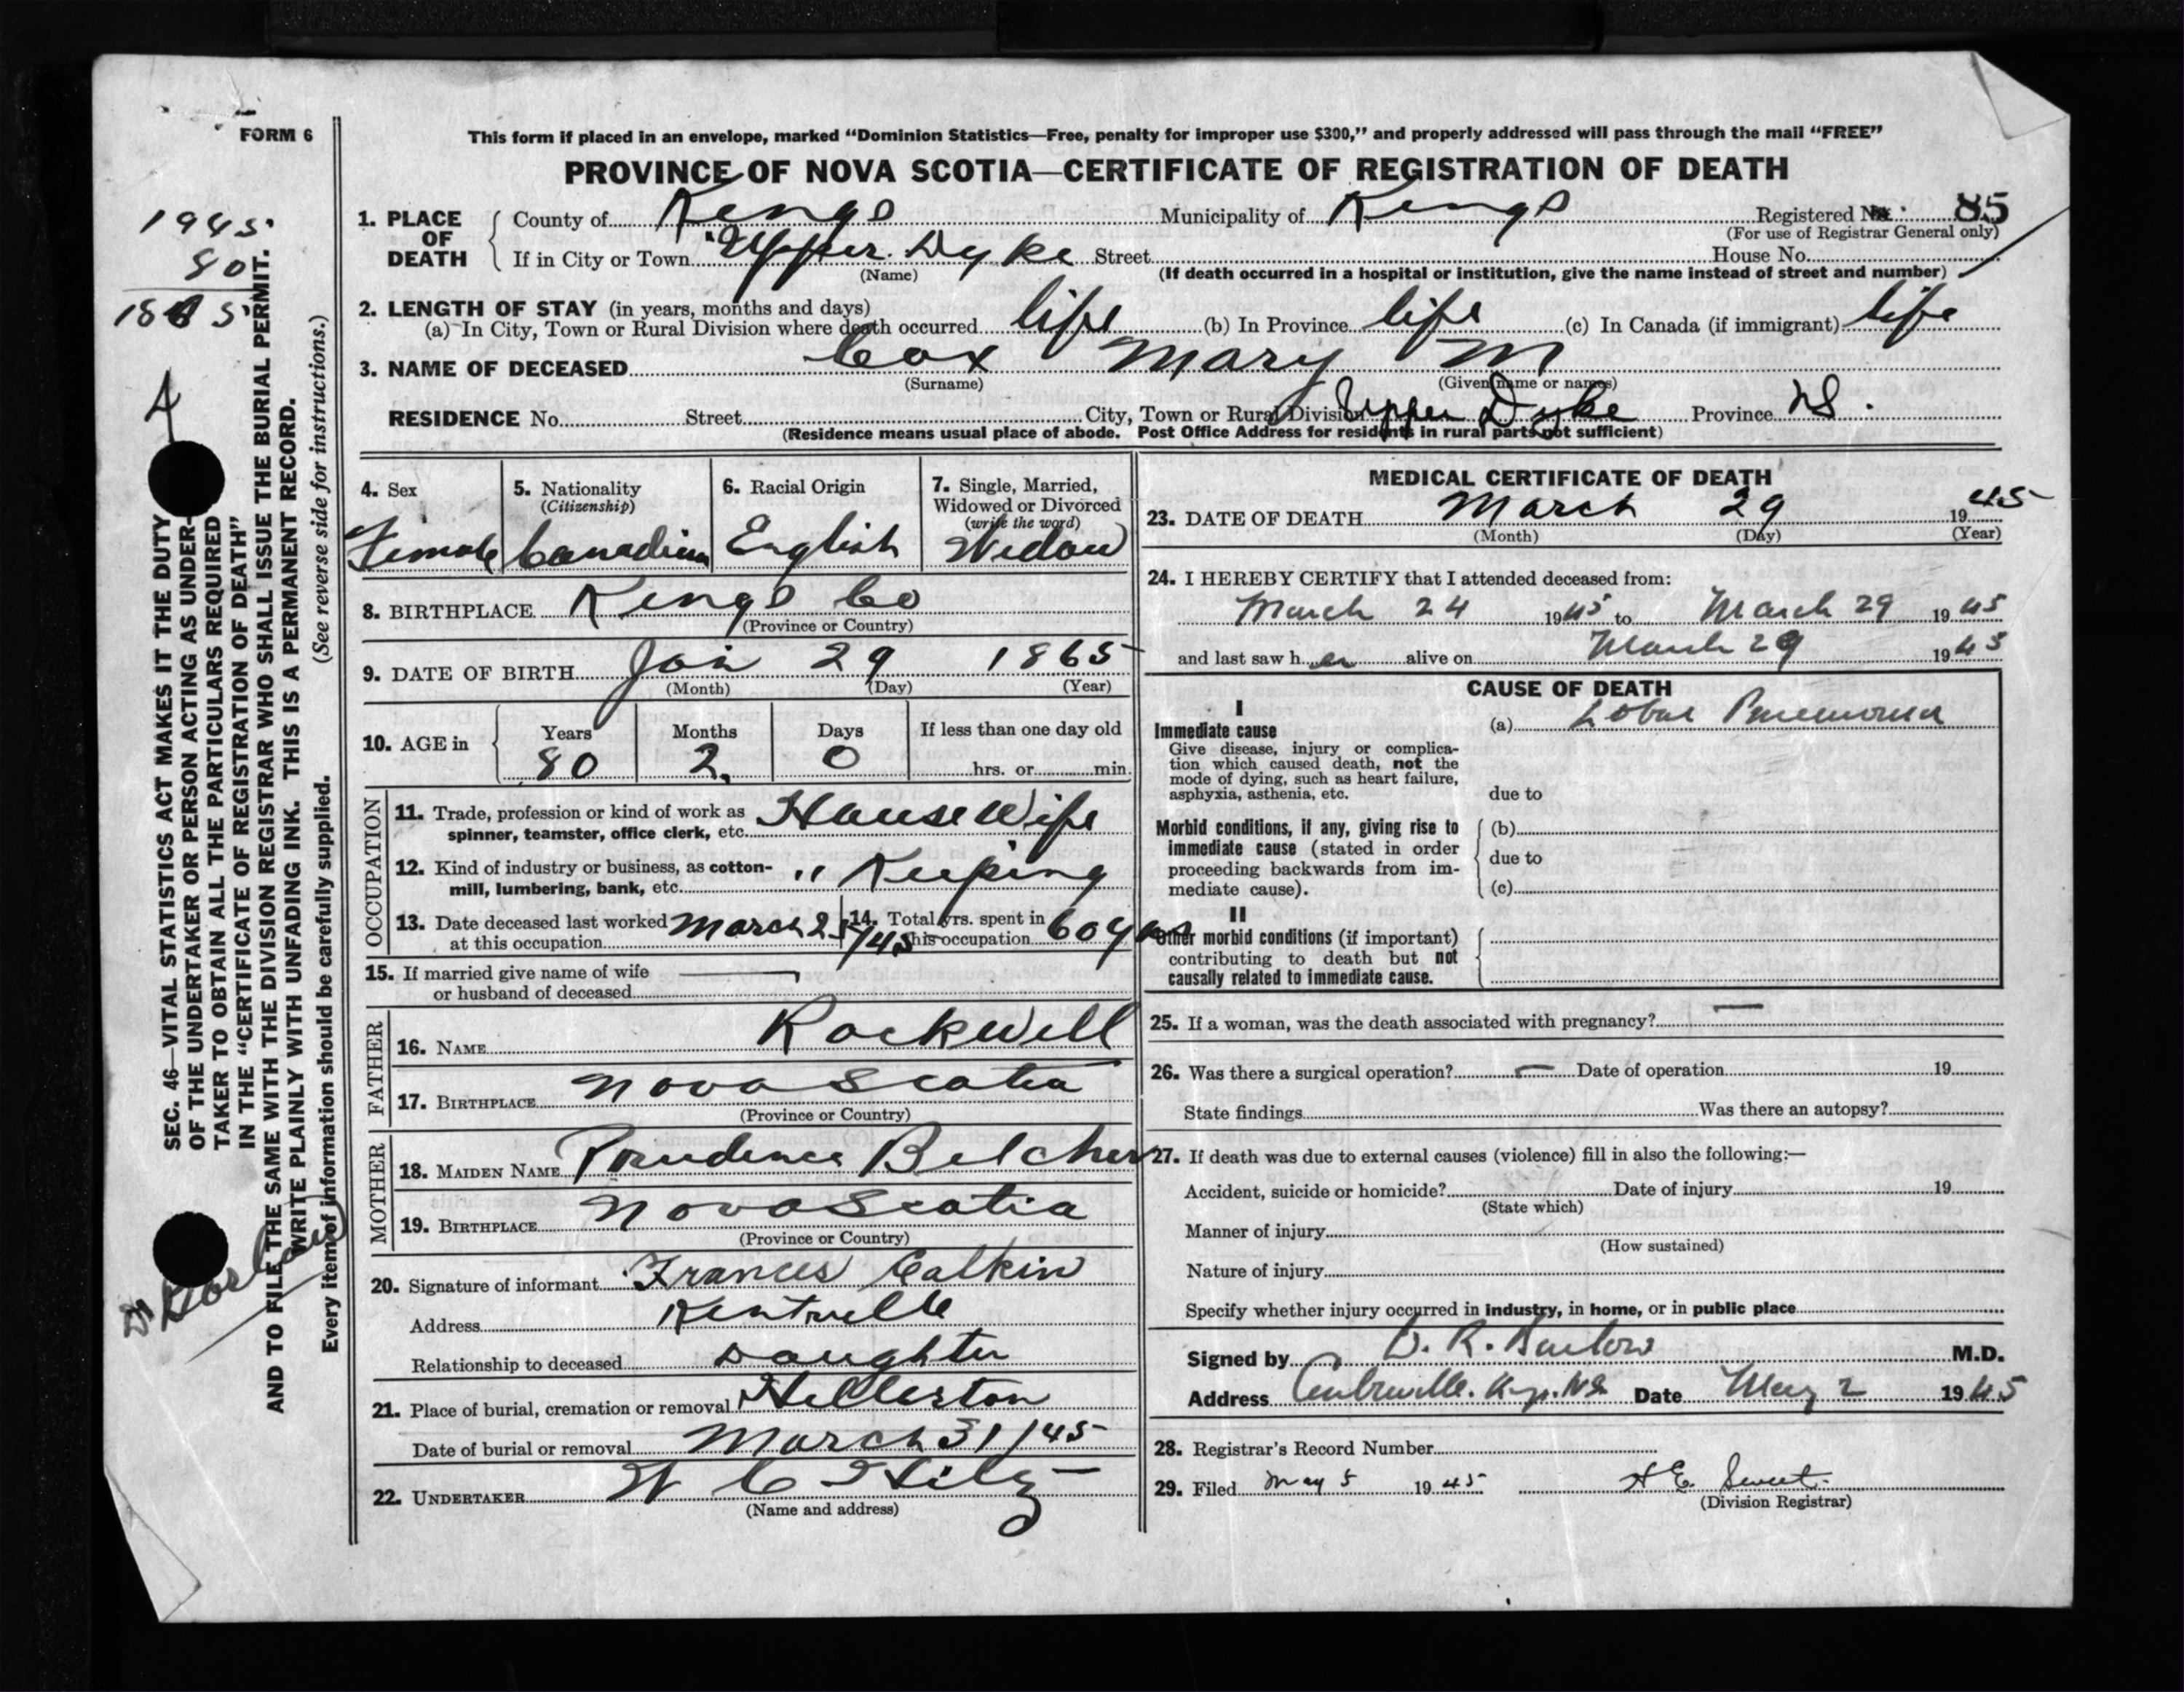 FORM 6
This form if placed in an envelope, marked “Dominion Statistics—Free, penalty for improper use $300,” and properly addressed will pass through the mail “FREE”
PROVINCE OF NOVA SCOTIA—CERTIFICATE OF REGISTRATION OF DEATH
1945
80
1865
SEC. 46—VITAL STATISTICS ACT MAKES IT THE DUTY
OF THE UNDERTAKER OR PERSON ACTING AS UNDER-
TAKER TO OBTAIN ALL THE PARTICULARS REQUIRED
IN THE “CERTIFICATE OF REGISTRATION OF DEATH”
AND TO FILE THE SAME WITH THE DIVISION REGISTRAR WHO SHALL ISSUE THE BURIAL PERMIT.
WRITE PLAINLY WITH UNFADING INK. THIS IS A PERMANENT RECORD.
Every item of information should be carefully supplied. (See reverse side for instructions.)
1. PLACE OF DEATH County of Kings Municipality of Kings Registered No. 85
(For use of Registrar General only)
If in City or Town Upper Dyke Street House No.
(Name) (If death occurred in a hospital or institution, give the name instead of street and number)
2. LENGTH OF STAY (in years, months and days)
(a) In City, Town or Rural Division where death occurred life (b) In Province life (c) In Canada (if immigrant) life
3. NAME OF DECEASED Cox Mary M
(Surname) (Given name or names)
RESIDENCE No. Street City, Town or Rural Division Upper Dyke Province NS.
(Residence means usual place of abode. Post Office Address for residents in rural parts not sufficient)
4. Sex
Female
5. Nationality
(Citizenship)
Canadian
6. Racial Origin
English
7. Single, Married,
Widowed or Divorced
(write the word)
Widow
8. BIRTHPLACE Kings Co
(Province or Country)
9. DATE OF BIRTH Jan 29 1865
(Month) (Day) (Year)
10. AGE in Years Months Days If less than one day old
80 2 0 hrs. or min.
OCCUPATION
11. Trade, profession or kind of work as
spinner, teamster, office clerk, etc. HouseWife
12. Kind of industry or business, as cotton-
mill, lumbering, bank, etc. " Keeping
13. Date deceased last worked
at this occupation March 25/45
14. Total yrs. spent in
this occupation 60 yrs
15. If married give name of wife
or husband of deceased —
FATHER
16. NAME Rockwell
17. BIRTHPLACE Nova Scotia
(Province or Country)
MOTHER
18. MAIDEN NAME Prudence Belcher
19. BIRTHPLACE Nova Scotia
(Province or Country)
20. Signature of informant Frances Calkin
Address Kentville
Relationship to deceased Daughter
21. Place of burial, cremation or removal Hillerston
Date of burial or removal March 31/45
22. UNDERTAKER W C Hilz
(Name and address)
MEDICAL CERTIFICATE OF DEATH
23. DATE OF DEATH March 29 1945
(Month) (Day) (Year)
24. I HEREBY CERTIFY that I attended deceased from:
March 24 1945 to March 29 1945
and last saw her alive on March 29 1945
CAUSE OF DEATH
I
Immediate cause
Give disease, injury or complica-
tion which caused death, not the
mode of dying, such as heart failure,
asphyxia, asthenia, etc.
(a) Lobar Pneumonia
due to
Morbid conditions, if any, giving rise to
immediate cause (stated in order
proceeding backwards from im-
mediate cause).
(b)
due to
(c)
II
Other morbid conditions (if important)
contributing to death but not
causally related to immediate cause.
25. If a woman, was the death associated with pregnancy? —
26. Was there a surgical operation? — Date of operation 19
State findings Was there an autopsy?
27. If death was due to external causes (violence) fill in also the following:—
Accident, suicide or homicide? Date of injury 19
(State which)
Manner of injury
(How sustained)
Nature of injury
Specify whether injury occurred in industry, in home, or in public place
Signed by D. R. Barlow M.D.
Address Centreville. NS Date May 2 1945
28. Registrar’s Record Number
29. Filed May 5 1945 H E. Sweet.
(Division Registrar)